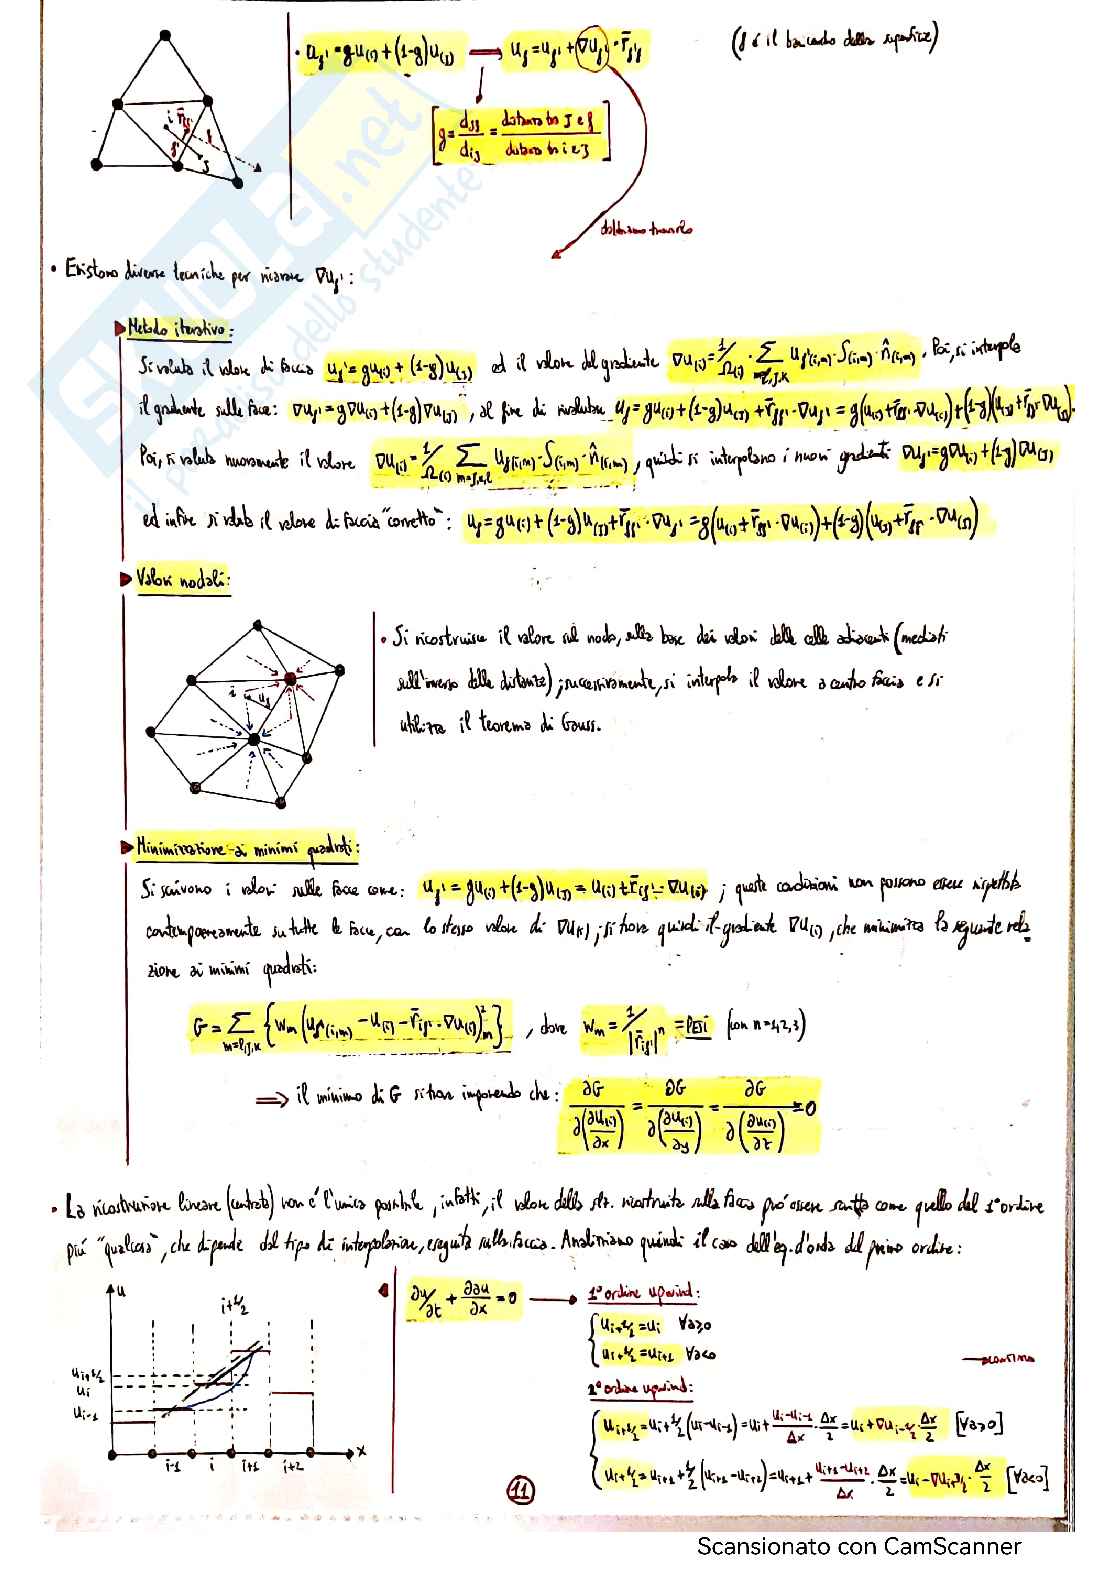 • u_f' = g u_(i) + (1-g) u_(J) → u_f = u_f' + ∇u_f' · r̄_f'f (f è il baricentro della superficie)
[g = d_Jf/d_iJ = distanza tra J e f / distanza tra i e J]
i r̄ f' f J
dobbiamo trovarlo
• Esistono diverse tecniche per ricavare ∇u_f' :
Metodo iterativo:
Si valuta il valore di faccia u_f' = g u_(i) + (1-g) u_(J) ed il valore del gradiente ∇u_(i) = 1/Ω_(i) · Σ_{m=l,J,K} u_f'(i,m) · S_(i,m) · n̂_(i,m) . Poi, si interpola
il gradiente sulle facce: ∇u_f' = g∇u_(i) + (1-g)∇u_(J) , al fine di rivalutare u_f = g u_(i) + (1-g) u_(J) + r̄_ff' · ∇u_f' = g(u_(i) + r̄_ff' · ∇u_(i)) + (1-g)(u_(J) + r̄_ff' · ∇u_(J)).
Poi, si valuta nuovamente il valore ∇u_(i) = 1/Ω_(i) Σ_{m=J,K,l} u_f(i,m) · S_(i,m) · n̂_(i,m) , quindi si interpolano i nuovi gradienti ∇u_f' = g∇u_(i) + (1-g)∇u_(J)
ed infine si valuta il valore di faccia "corretto": u_f = g u_(i) + (1-g) u_(J) + r̄_ff' · ∇u_f' = g(u_(i) + r̄_ff' · ∇u_(i)) + (1-g)(u_(J) + r̄_ff' · ∇u_(J))
Valori nodali:
i u_f
• Si ricostruisce il valore sul nodo, sulla base dei valori delle celle adiacenti (mediati
sull'inverso delle distanze) ; successivamente, si interpola il valore a centro faccia e si
utilizza il teorema di Gauss.
Minimizzazione ai minimi quadrati:
Si scrivono i valori sulle facce come: u_f' = g u_(i) + (1-g) u_(J) = u_(i) + r̄_if' · ∇u_(i) ; queste condizioni non possono essere rispettate
contemporaneamente su tutte le facce, con lo stesso valore di ∇u_(i) ; si trova quindi il gradiente ∇u_(i) , che minimizza la seguente rela
zione ai minimi quadrati:
G = Σ_{m=l,J,K} {w_m (u_f'(i,m) - u_(i) - r̄_if' · ∇u_(i))²_m} , dove w_m = 1/|r̄_if'|ⁿ = PESI (con n=1,2,3)
⇒ il minimo di G si trova imponendo che: ∂G/∂(∂u_(i)/∂x) = ∂G/∂(∂u_(i)/∂y) = ∂G/∂(∂u_(i)/∂z) = 0
• La ricostruzione lineare (centrata) non è l'unica possibile, infatti, il valore della slz. ricostruita sulla faccia può essere scritta come quello del 1° ordine
più "qualcosa", che dipende dal tipo di interpolazione, eseguita sulla faccia. Analizziamo quindi il caso dell'eq. d'onda del primo ordine:
u i+1/2
u_i+1/2
u_i
u_i-1
i-1 i i+1 i+2 x
∂u/∂t + ∂au/∂x = 0 → 1° ordine upwind:
{ u_i+1/2 = u_i ∀a≥0
u_i+1/2 = u_i+1 ∀a<0
2° ordine upwind:
{ u_i+1/2 = u_i + 1/2 (u_i - u_i-1) = u_i + (u_i - u_i-1)/Δx · Δx/2 = u_i + ∇u_i-1/2 · Δx/2 [∀a≥0]
u_i+1/2 = u_i+1 + 1/2 (u_i+1 - u_i+2) = u_i+1 + (u_i+1 - u_i+2)/Δx · Δx/2 = u_i - ∇u_i+3/2 · Δx/2 [∀a<0]
11
SKUOLA.net
il paradiso dello studente
Scansionato con CamScanner